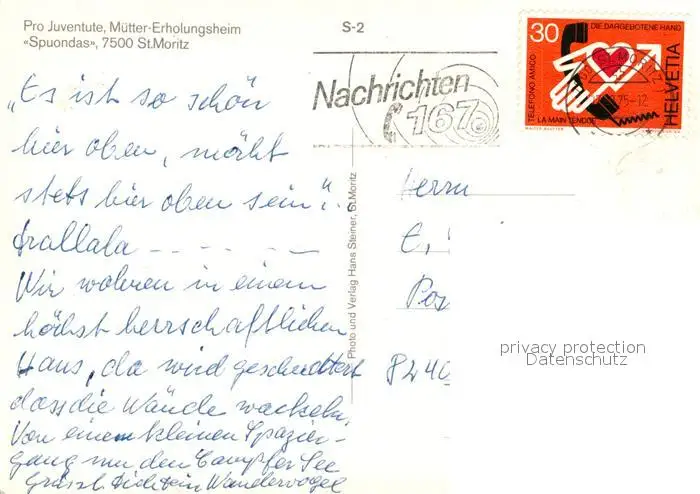 Pro Juventute, Mütter-Erholungsheim
«Spuondas», 7500 St.Moritz
S-2
Nachrichten
167
30
DIE DARGEBOTENE HAND
TELEFONO AMICO
LA MAIN TENDUE
HELVETIA
„Es ist so schön
hier oben, möcht
stets hier oben sein“.
trallala – – – – –
Wir wohnen in einem
höchst herrschaftlichen
Haus, da wird geschnattert
dass die Wände wackeln.
Von einem kleinen Spazier-
gang um den Campfer See
grüsst dich ein Wandervogel
Photo und Verlag Hans Steiner, St.Moritz
Herrn
E.
Pos
8240
privacy protection
Datenschutz